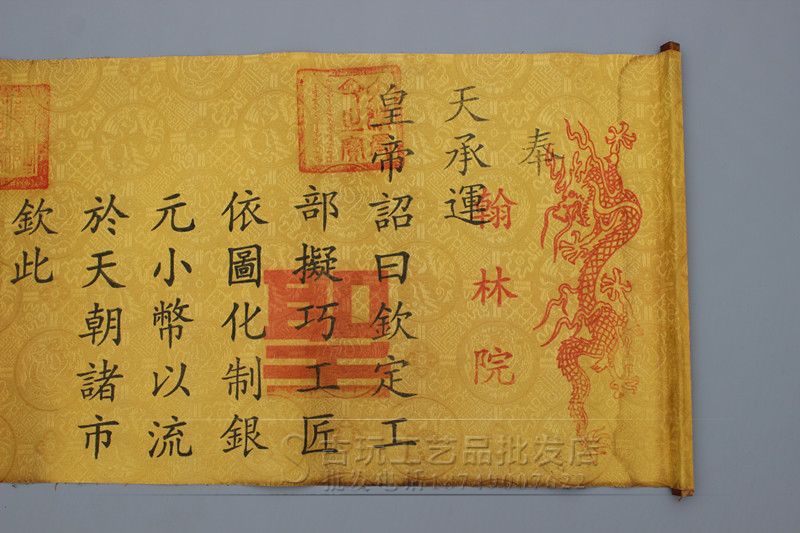 奉
天承運
皇帝詔曰欽定工
部擬巧工匠
依圖化制銀
元小幣以流
於天朝諸市
欽此
翰林院
聖旨
古玩工艺品批发店